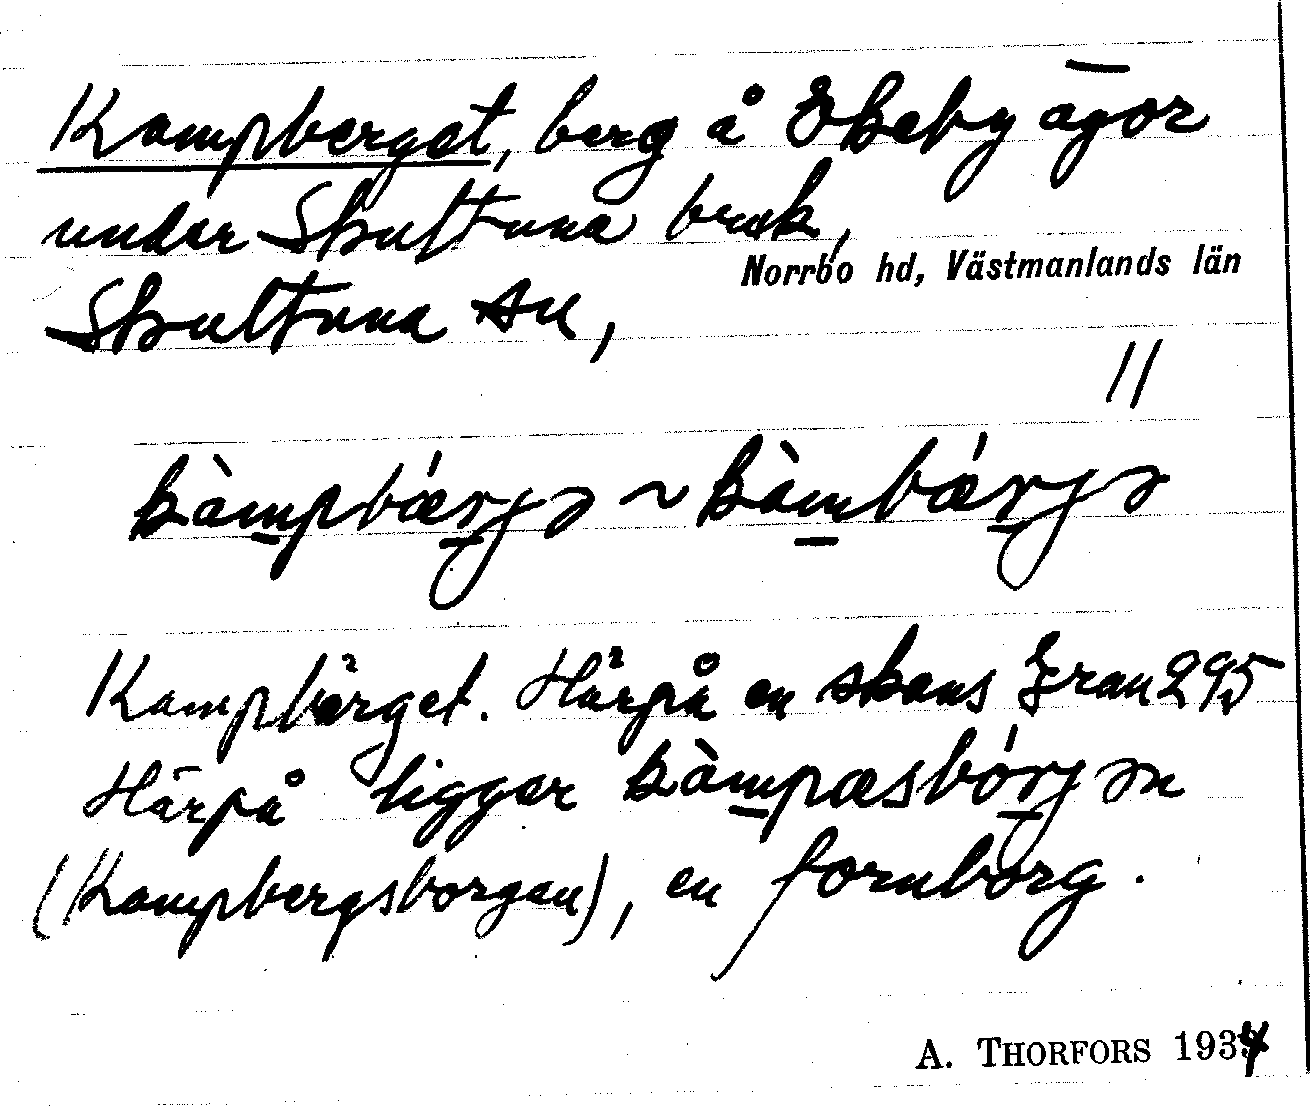 Kampberget, berg å Ekeby ägor
under Skultuna bruk,
Norrbo hd, Västmanlands län
Skultuna sn,
11
kàmpbǽrjə ~ kàmbǽrjə
Kampbärget. Härpå en skans Gran 295
Härpå ligger kàmpæsbórjən
(Kampbergsborgen), en fornborg.
A. THORFORS 1934